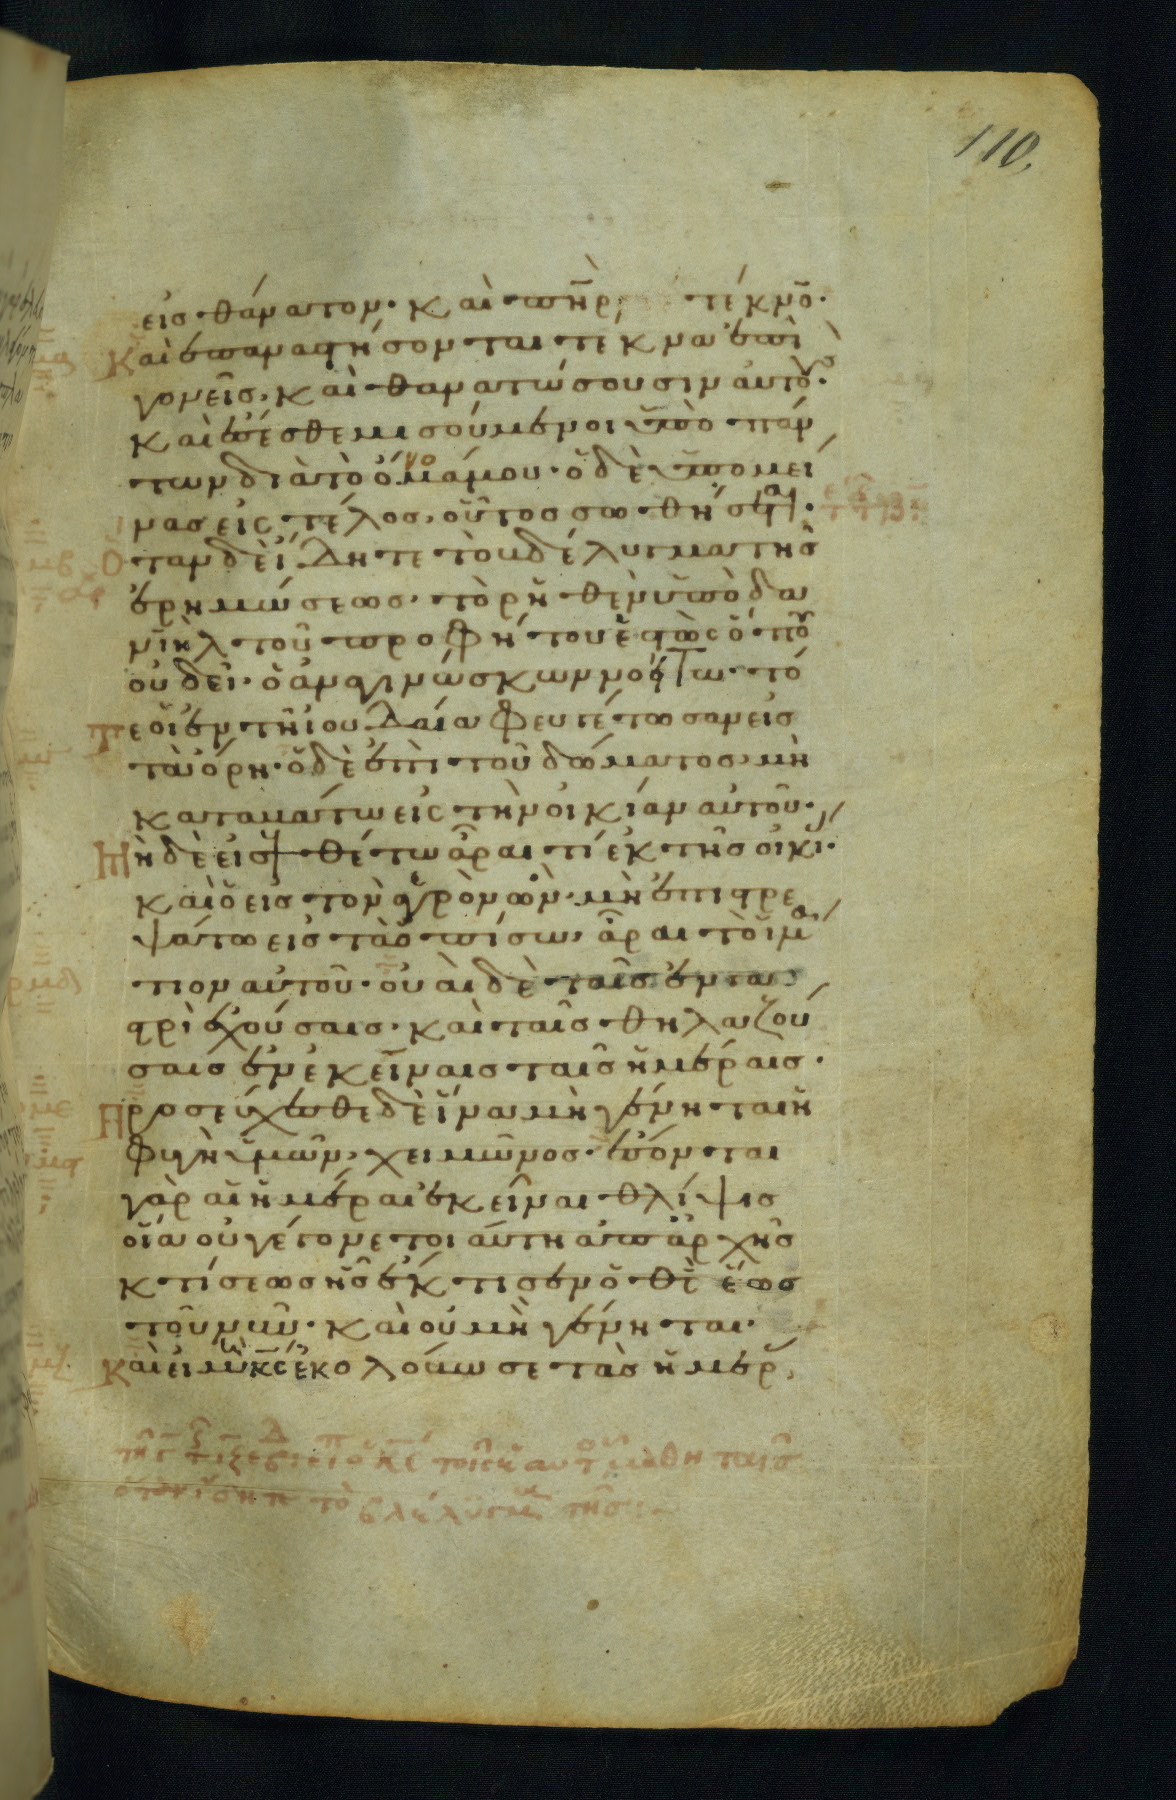 110
εἰς θάνατον· καὶ π̅η̅ρ τέκνο̅·
Καὶ ἐπαναστήσονται τέκνα ἐπὶ
γονεῖς· καὶ θανατώσουσιν αὐτού·
καὶ ἔσεσθε μισούμενοι ὑπὸ πάν
των διὰ τὸ ὄνομά μου· ὁ δὲ ὑπομεί
νας εἰς τέλος, οὗτος σωθήσεται·
Ὅταν δὲ ἴδητε τὸ βδέλυγμα τῆς
ἐρημώσεως, τὸ ρηθὲν ὑπὸ δα
νιὴλ τοῦ προφήτου ἑστὼς ὅπου
οὐ δεῖ· ὁ ἀναγινώσκων νοείτω· τό
τε οἱ ἐν τῇ ἰουδαία φευγέτωσαν εἰς
τὰ ὄρη· ὁ δὲ ἐπὶ τοῦ δώματος, μὴ
καταβάτω εἰς τὴν οἰκίαν αὐτοῦ·
Μηδὲ εἰσελθέτω ἆραι τί ἐκ τῆς οἰκί·
καὶ ὁ εἰς τὸν ἀγρὸν ὢν, μὴ ἐπιστρε
ψάτω εἰς τὰ ὀπίσω, ἆραι τὸ ἱμά
τιον αὐτοῦ· οὐαὶ δὲ ταῖς ἐν γα
στρὶ ἐχούσαις· καὶ ταῖς θηλαζού
σαις ἐν ἐκείναις ταῖς ἡμέραις·
Προσεύχεσθε δὲ ἵνα μὴ γένηται ἡ
φυγὴ ὑμῶν, χειμῶνος· ἔσονται
γὰρ αἱ ἡμέραι ἐκεῖναι θλίψις
οἵα οὐ γέγονε τοιαύτη ἀπαρχῆς
κτίσεως ἧς ἔκτισεν ὁ θ̅ς̅ ἕως
τοῦ νῦν· καὶ οὐ μὴ γένηται·
Καὶ εἰ μὴ κ̅ς̅ ἐκολόβωσε τὰς ἡμέρ